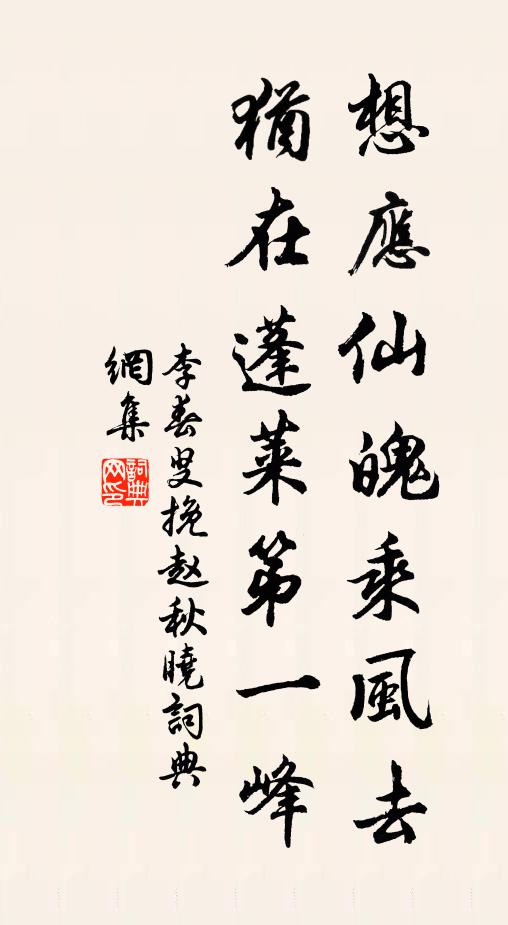 想應仙魄乘風去
猶在蓬萊第一峰
李春叟挽赵秋曉詞典
網集
詞典網印